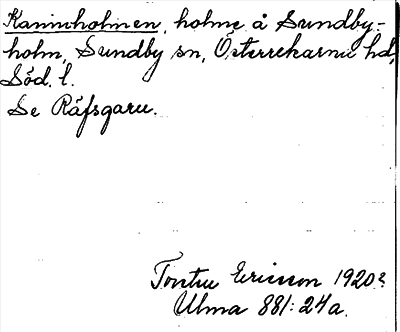 Kaninholmen, holme å Sundby-
holm, Sundby sn, Österrekarne hd,
Söd. l.
Se Räfsgarn.
Torsten Ericsson 1920?
Ulma 881:24a.